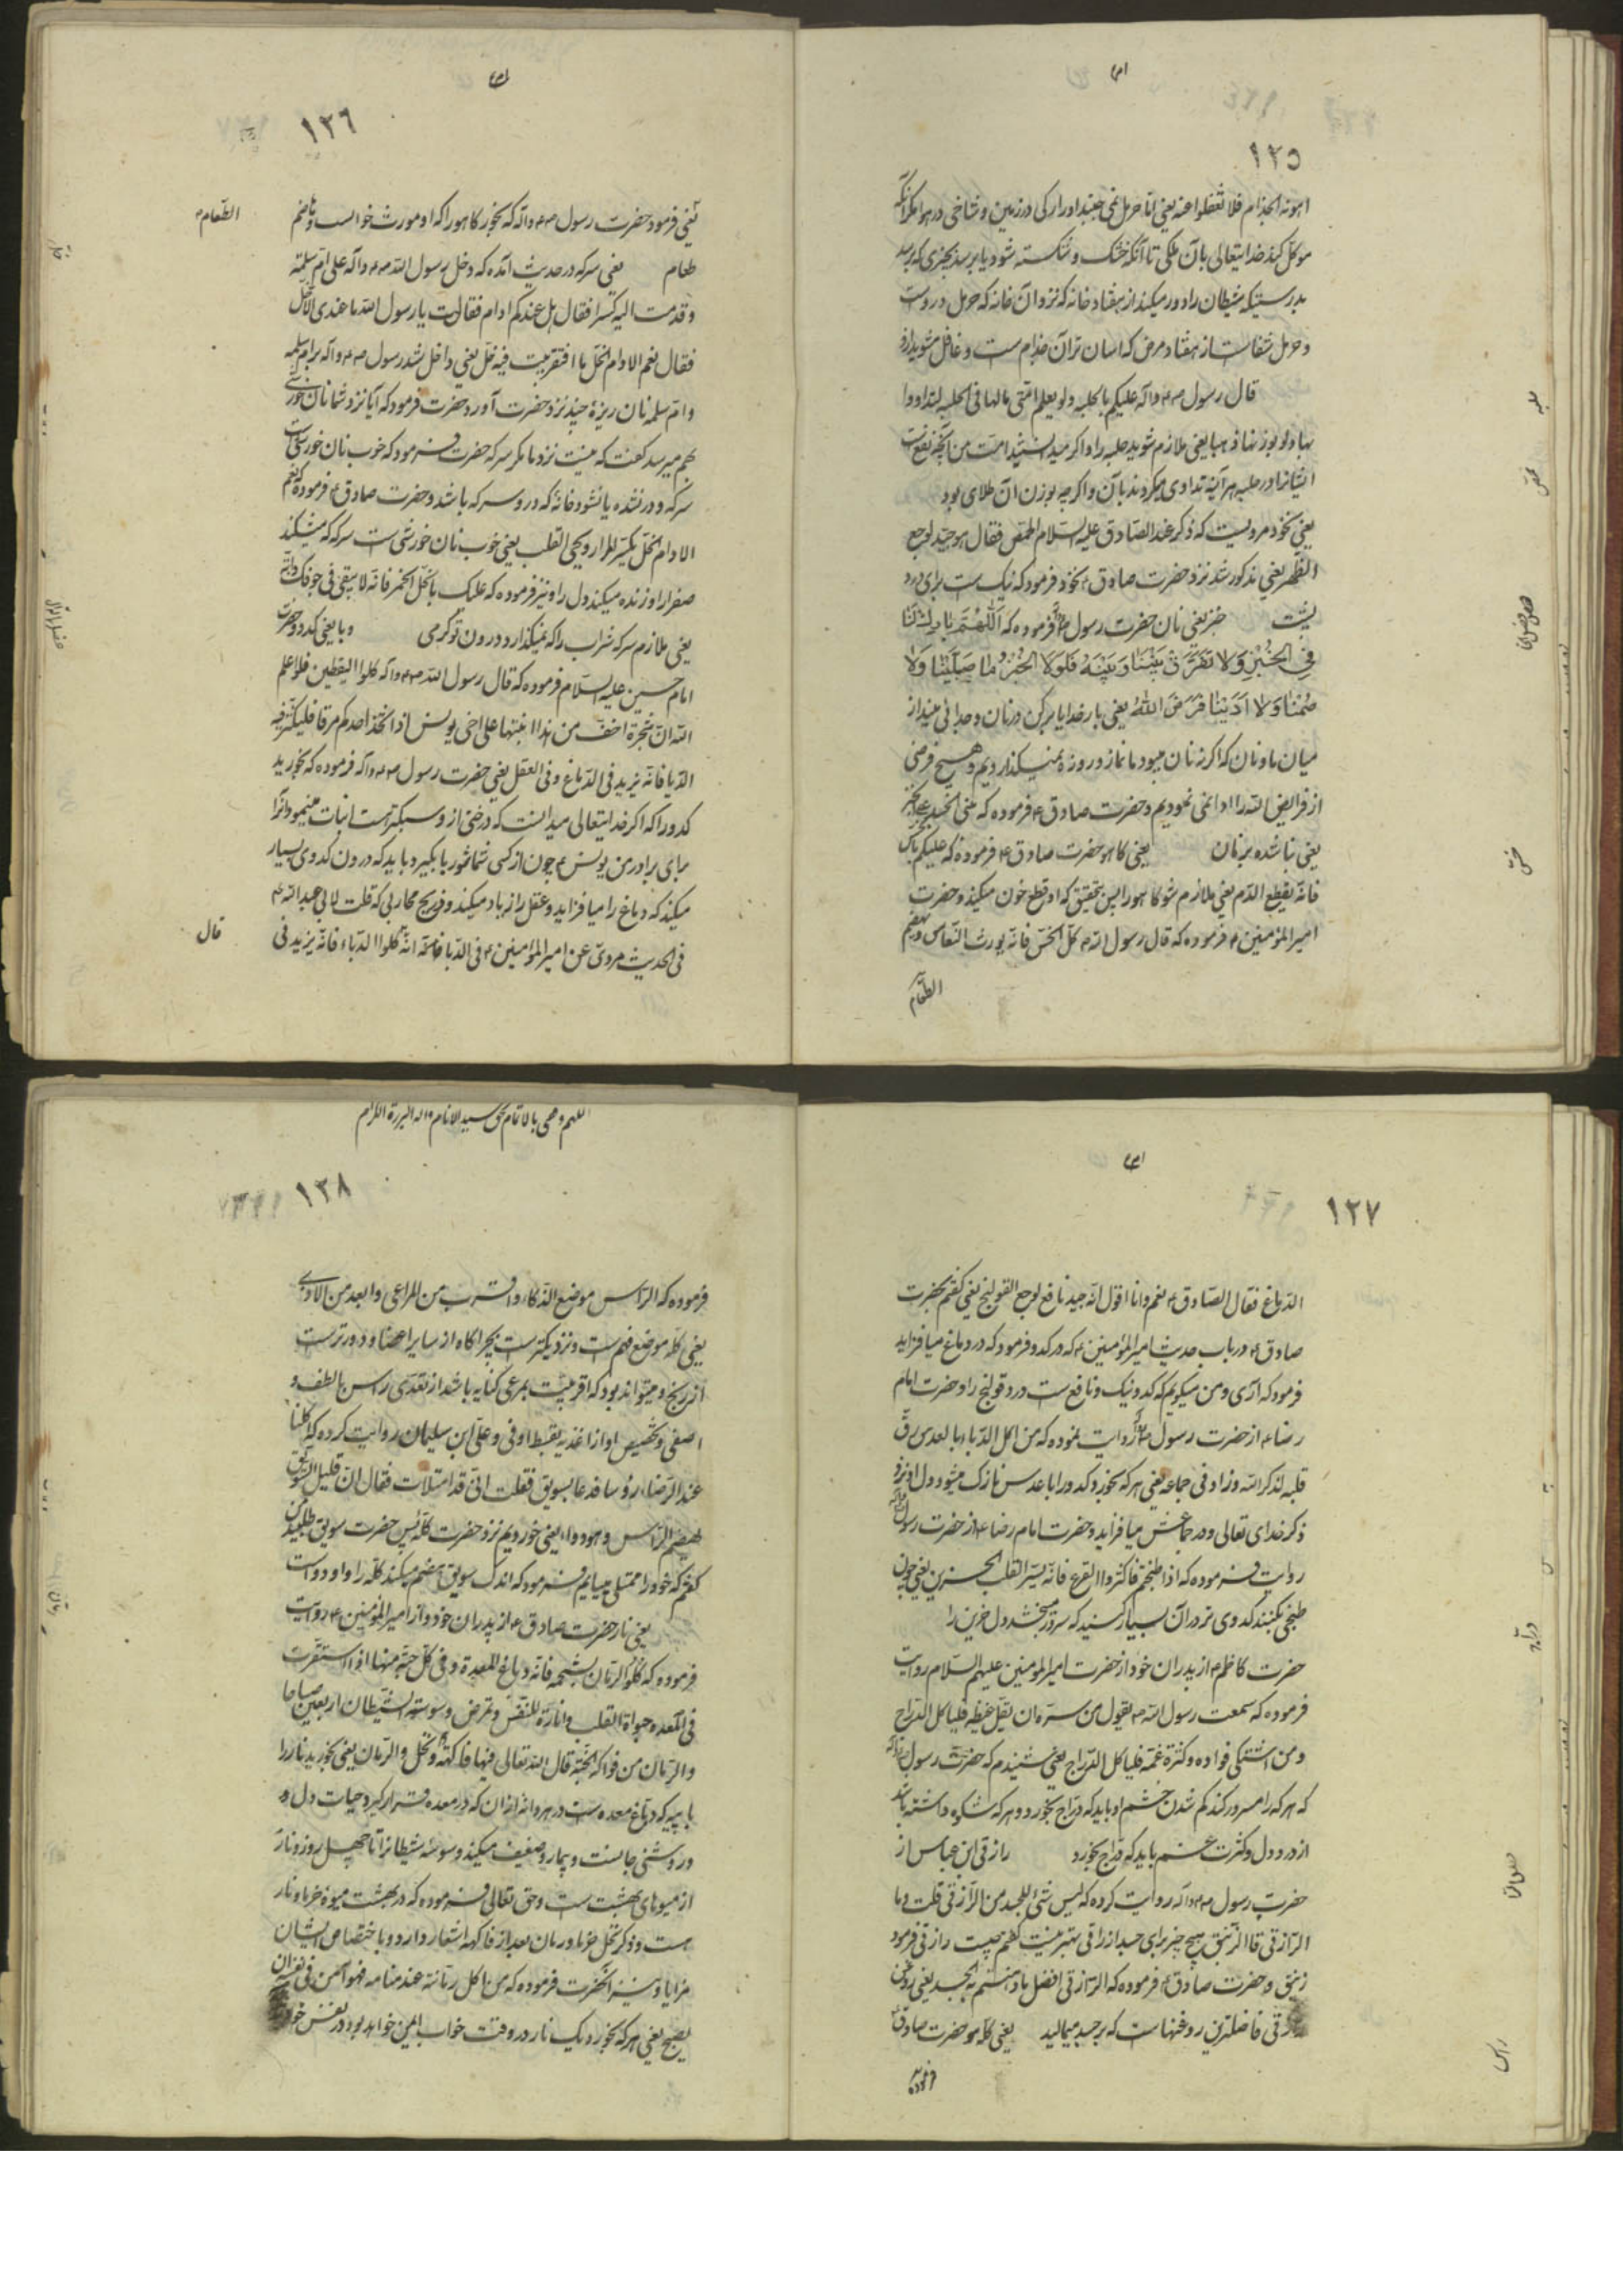 ۱۲۵
اهونه الجذام فلا تغفلوا عنه یعنی اما حرمل نمی جنبد او را رکی در زمین و شاخی در هوا مگر آنکه
موکل کند خدایتعالی بآن ملکی تا آنکه خشک و شکسته شود یا برسد بچیزی که برسد
بدرستیکه شیطان را دور میکند از هفتاد خانه که نزد آن خانه که حرمل در وست
و حرمل شفاست از هفتاد مرض که اسان تر آن جذام ست و غافل مشوید ازو
قال رسول صم واله علیکم بالحلبه ولو یعلم امتی مالها فی الحلبه لتداووا
بها ولو بوزنها ذهبا یعنی ملازم شوید حلبه را و اگر میدانستند امت من آنچه نفعست
ایشانرا در حلبه هر آینه تداوی میکردند بآن و اگرچه بوزن آن طلای بود
یعنی نخود مرویست که ذکر عند الصادق علیه السلام الحمص فقال هو جید لوجع
الظهر یعنی مذکور شد نزد حضرت صادق ع نخود فرمود که نیک ست برای درد
پشت خبز یعنی نان حضرت رسول فرموده که اللهم بارک لنا
فی الخبز ولا تفرق بیننا وبینه فلولا الخبز ما صلینا ولا
صمنا ولا ادینا فرض الله یعنی بار خدایا برکت کن در نان و جدائی مینداز
میان ما و نان که اگر نه نان میبود ما نماز و روزه نمیگذاردیم و هیچ فرضی
از فرایض الله را ادا نمی نمودیم و حضرت صادق ع فرموده که بنی الجسد علی الخبز
یعنی بنا شده بر نان یعنی کاهو حضرت صادق ع فرموده که علیکم بالخس
فانه یقطع الدم یعنی ملازم شو کاهو را پس بتحقیق که او قطع خون میکند و حضرت
امیر المؤمنین ع فرموده که قال رسول الله ص کل الخس فانه یورث النعاس ویهضم
الطعام
حلبه
حمص
خس
۱۲۶
یعنی فرمود حضرت رسول صم واله که بخور کاهو را که او مورث خوابست و هاضم
طعام یعنی سرکه در حدیث آمده که دخل رسول الله صم واله علی ام سلمة
وقدمت الیه کسرا فقال هل عندکم ادام فقالت یا رسول الله ما عندی الا خل
فقال نعم الادام الخل ما افتقر بیت فیه خل یعنی داخل شد رسول صم واله بر ام سلمه
و ام سلمه نان ریزهٔ چند نزد حضرت آورد حضرت فرمود که آیا نزد شما نان خورشی
بهم میرسد گفت که نیست نزد ما مگر سرکه حضرت فرمود که خوب نان خورشیست
سرکه و در نشده یا نشود خانه که درو سرکه باشد و حضرت صادق ع فرموده که نعم
الادام الخل یکسر المرار ویحیی القلب یعنی خوب نان خورشی ست سرکه که میشکند
صفرا را و زنده میکند دل را و نیز فرموده که علیک بالخل الخمر فانه لا یبقی فی جوفک دابة
یعنی ملازم سرکه شراب را که نمیگذارد در درون تو کرمی وبا یعنی کدو حضرت
امام حسین علیه السلام فرموده که قال رسول الله صم واله کلوا الیقطین فلو علم
الله ان شجرة اخف من هذا لانبتها علی اخی یونس اذا اتخذ احدکم مرقا فلیکثر فیه
الدبا فانه یزید فی الدماغ وفی العقل یعنی حضرت رسول صم واله فرموده که بخورید
کدو را که اگر خدایتعالی میدانست که درختی از و سبکترست انبات مینمود آنرا
برای برادر من یونس ع چون از کسی شما شوربا بگیرد باید که در ون کدوی بسیار
میکند که دماغ را میافزاید و عقل را زیاد میکند و ذریح محاربی که قلت لابی عبد الله ع
فی الحدیث مروی عن امیر المؤمنین ع فی الدبا فانه انه کلوا الدباء فانه یزید فی
الطعام
قال
۱۲۷
الدماغ فقال الصادق ع نعم وانا اقول انه جید نافع لوجع القولنج یعنی گفتم بحضرت
صادق ع در باب حدیث امیر المؤمنین ع که در کدو فرمود که در دماغ میافزاید
فرمود که آری و من میگویم که کدو نیک و نافع ست درد قولنج را و حضرت امام
رضا ع از حضرت رسول روایت نموده که من اکل الدباء بالعدس رق
قلبه لذکر الله وزاد فی جماعه یعنی هر که بخورد کدو را با عدس نازک میشود دل او نزد
ذکر خدای تعالی و در جماعش میافزاید و حضرت امام رضا ع از حضرت رسول
روایت فرموده که اذا طبختم فاکثروا القرع فانه یسر القلب الحزین یعنی چون
طبخی بکنید کدوی تر در آن بسیار کنید که سرور میبخشد دل حزین را
حضرت کاظم ع از پدران خود از حضرت امیر المومنین علیهم السلام روایت
فرموده که سمعت رسول الله ص یقول من سره ان یقل غیظه فلیاکل الدراج
ومن اشتکی فواده وکثرة غمه فلیاکل الدراج یعنی شنیدم که حضرت رسول
که هر که را مسرور کند کم شدن خشم او باید که دراج بخورد و هر که شکوه داشته باشد
از درد دل و کثرت غم باید که دراج بخورد رازقی ابن عباس از
حضرت رسول صم واله روایت کرده که لیس شیء للجسد من الرازقی قلت وما
الرازقی قال الزنبق هیچ چیز برای جسد از رازقی بهتر نیست گفتم چیست رازقی فرمود
زنبق و حضرت صادق ع فرموده که الرازقی افضل ما دهنتم به الجسد یعنی روغن
زقی فاضلترین روغنها ست که بر جسد میمالید یعنی کله و حضرت صادق
فرموده
دراج
راس
اللهم وفقنی بالاتمام بحق سید الانام واله البررة الکرام
۱۲۸
فرموده که الراس موضع الذکاء واقرب من المراعی وابعد من الاذی
یعنی کله موضع فهم ست و نزدیکترست بچراگاه از سایر اعضا و دورترست
از رنج و میتواند بود که اقربیت بمرعی کنایه باشد از تغذی راس بالطف و
اصفی و تخصیص او از اغذیه بقسط اوفی و علی ابن سلیمان روایت کرده که اکلنا
عند الرضا ع رؤسا فدعا بسویق فقلت انی قد امتلات فقال ان قلیل السویق
یهضم الراس وهو دواء یعنی خوردیم نزد حضرت کله پس حضرت سویق طلبید من
گفتم که خود را ممتلی مییابم فرمود که اندک سویق هضم میکند کله را و او دواست
یعنی نار حضرت صادق ع از پدران خود و از امیر المؤمنین ع روایت
فرموده که کلوا الرمان بشحمه فانه دباغ المعدة وفی کل حبة منها اذا استقرت
فی المعده حیواة القلب وانارة للنفس وتمرض وسوسة الشیطان اربعین صباحا
والرمان من فواکه الجنة قال الله تعالی فیها فاکهة ونخل والرمان یعنی بخورید نار را
با پیه که دباغ معده ست و در هر دانه از ان که در معده قرار گیرد حیات دل و
و روشنی جانست و بیمار و ضعیف میکند وسوسه شیطانرا تا چهل روز و نار
از میوهای بهشت ست و حق تعالی فرموده که در بهشت میوه خرما و نار
هست و ذکر نخل خرما و رمان بعد از فاکهه اشعار دارد و باختصاص ایشان
مزایا و نیز آنحضرت فرموده که من اکل رمانة عند منامه فهو آمن فی نفسه ان
یصبح یعنی هر که بخورد یک نار در وقت خواب ایمن خواهد بود در نفس خود